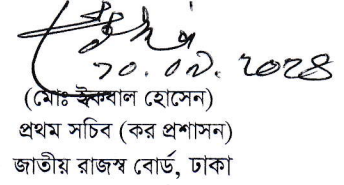 ১০.০৯.২০২৪
(মোঃ ইকবাল হোসেন)
প্রথম সচিব (কর প্রশাসন)
জাতীয় রাজস্ব বোর্ড, ঢাকা